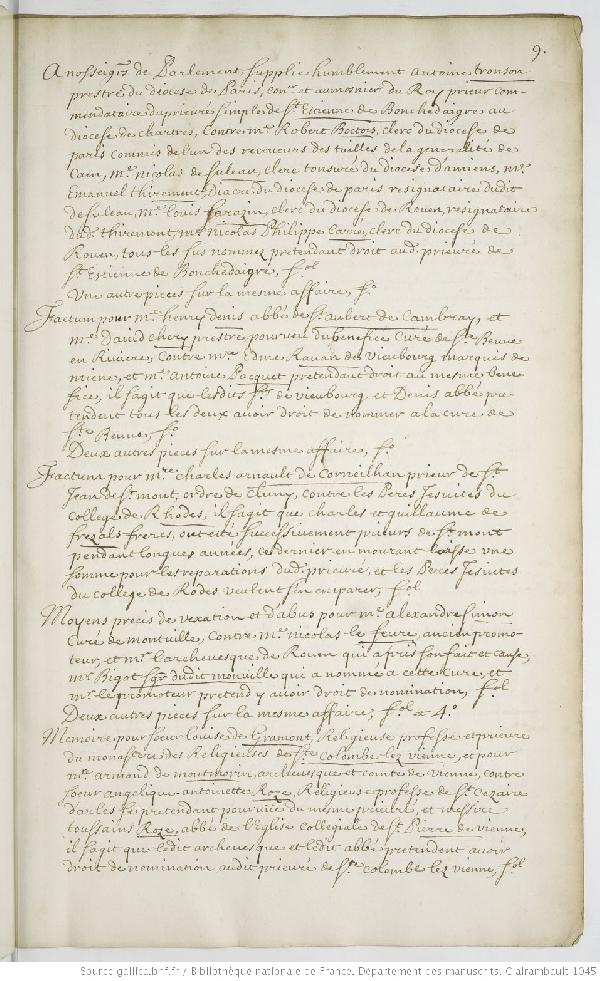 9.
A nosseigrs de Parlement, supplie humblement Antoine tronson
prestre du diocese de Paris, conr. et aumosnier du Roy prieur com-
mendataire du prieuré simple de St. Estienne de Bonchedaigre au
diocese de chartres, Contre mr. Robert Boctois, clerc du diocese de
paris commis de l'un des receveurs des tailles de la generalité de
Caen, mr. nicolas de suleau, clerc tonsuré du diocese d'amiens, mr.
Emanuel thirement, Diacre du diocese de paris resignataire dudit
de suleau, mr. Louis sarazin, clerc du diocese de Rouen, resignataire
dud. thiremont, mr. nicolas Philippe Carré, clerc du diocese de
Rouen, tous les sus nommez pretendant droit aud. prieuré de
St. Estienne de Bonchedaigre, fol.
Une autre pieces sur la mesme affaire, fo.
Factum pour mre. henry denis abbé de St. aubert de Cambray, et
mre. David chery prestre pourveu du benefice Cure de Ste Beuve
en Riviere, Contre mre. Edme Ravan de vieubourg marquis de
miene, et mr. Antoine Pacquet pretendant droit au mesme bene
fice, il s'agit que lesdits srs. de vieubourg, et Denis abbé pre-
tendent tous les deux avoir droit de nommer a la cure de
Ste Beuve, fo.
Deux autres pieces sur la mesme affaire, fo.
Factum pour mre. charles arnault de Corneilhan prieur de St.
Jean de St. mont, ordre de Cluny, contre les Peres Jesuites du
college de Rhodes, il s'agit que charles et guillaume de
frezals freres, ont esté successivement prieurs de St. mont
pendant longues années, ce dernier en mourant laisse une
somme pour les reparations dud. prieuré, et les Peres Jesuites
du college de Rodes veulent s'en emparer, fol.
Moyens precis de vexation et d'abus pour mr. alexandre simon
Curé de montville, contre mr. nicolas le fevre, ancien promo-
teur, et mr. l'archevesque de Rouen qui a pris son fait et cause,
mr. Bigot sgr. dudit monville qui a nommé a cette Cure, et
mr. le promoteur pretend y avoir droit de nomination, fol.
Deux autres pieces sur la mesme affaire, fol. et 4o.
Memoire, pour soeur Louise de Gramont, Religieuse professe et prieure
du monastere des Religieuses de Ste Colombe lez vienne, et pour
mr. armand de montmorin, archevesque et comte de vienne, contre
soeur angelique antoinette Roze, Religieuse professe de St. Cezaire
d'arles se pretendant pourvuë du mesme prieuré, et messire
toussains Roze, abbé de l'Eglise collegiale de St. Pierre de vienne,
il s'agit que ledit archevesque et ledit abbé pretendent avoir
droit de nomination audit prieuré de Ste Colombe lez vienne, fol.
Source gallica.bnf.fr / Bibliothèque nationale de France. Département des manuscrits. Clairambault 1045